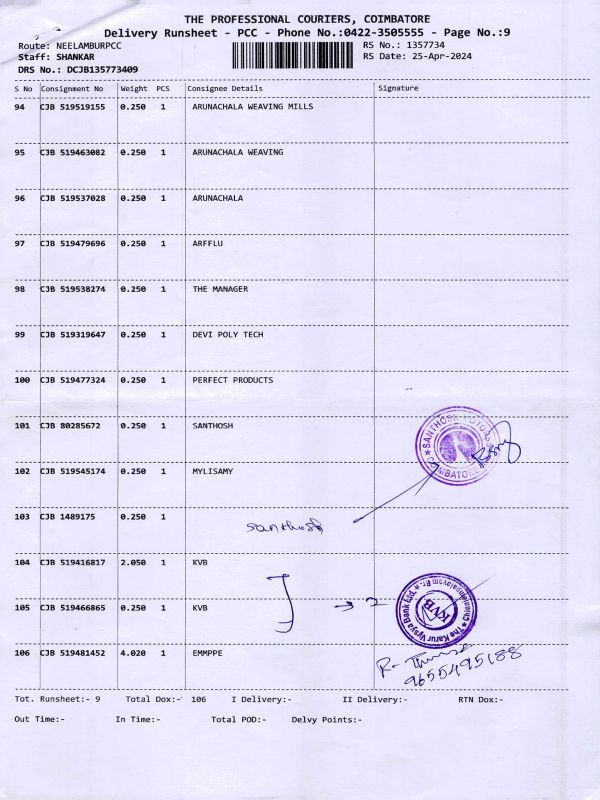 THE PROFESSIONAL COURIERS, COIMBATORE
Delivery Runsheet - PCC - Phone No.:0422-3505555 - Page No.:9
Route: NEELAMBURPCC RS No.: 1357734
Staff: SHANKAR RS Date: 25-Apr-2024
DRS No.: DCJB135773409
S No Consignment No Weight PCS Consignee Details Signature
94 CJB 519519155 0.250 1 ARUNACHALA WEAVING MILLS
95 CJB 519463082 0.250 1 ARUNACHALA WEAVING
96 CJB 519537028 0.250 1 ARUNACHALA
97 CJB 519479696 0.250 1 ARFFLU
98 CJB 519538274 0.250 1 THE MANAGER
99 CJB 519319647 0.250 1 DEVI POLY TECH
100 CJB 519477324 0.250 1 PERFECT PRODUCTS
101 CJB 80285672 0.250 1 SANTHOSH
102 CJB 519545174 0.250 1 MYLISAMY
COIMBATORE
103 CJB 1489175 0.250 1
Santhosh
104 CJB 519416817 2.050 1 KVB
105 CJB 519466865 0.250 1 KVB
→ 2
The Karur Vysya Bank Ltd.
KVB
106 CJB 519481452 4.020 1 EMMPPE
9655495188
Tot. Runsheet:- 9 Total Dox:- 106 I Delivery:- II Delivery:- RTN Dox:-
Out Time:- In Time:- Total POD:- Delvy Points:-